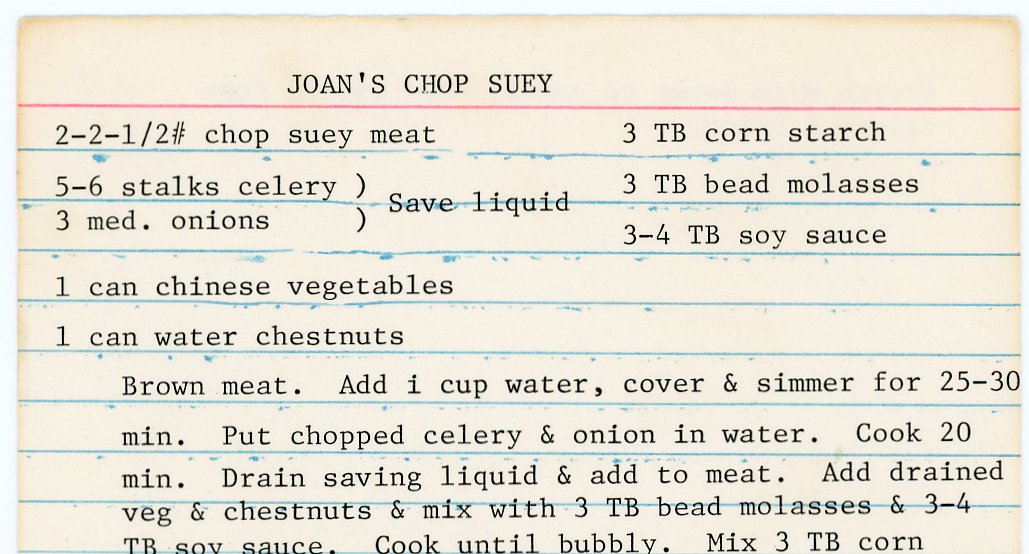 JOAN'S CHOP SUEY
2-2-1/2# chop suey meat 3 TB corn starch
5-6 stalks celery ) 3 TB bead molasses
Save liquid
3 med. onions )
3-4 TB soy sauce
1 can chinese vegetables
1 can water chestnuts
Brown meat. Add i cup water, cover & simmer for 25-30
min. Put chopped celery & onion in water. Cook 20
min. Drain saving liquid & add to meat. Add drained
veg & chestnuts & mix with 3 TB bead molasses & 3-4
TB soy sauce. Cook until bubbly. Mix 3 TB corn